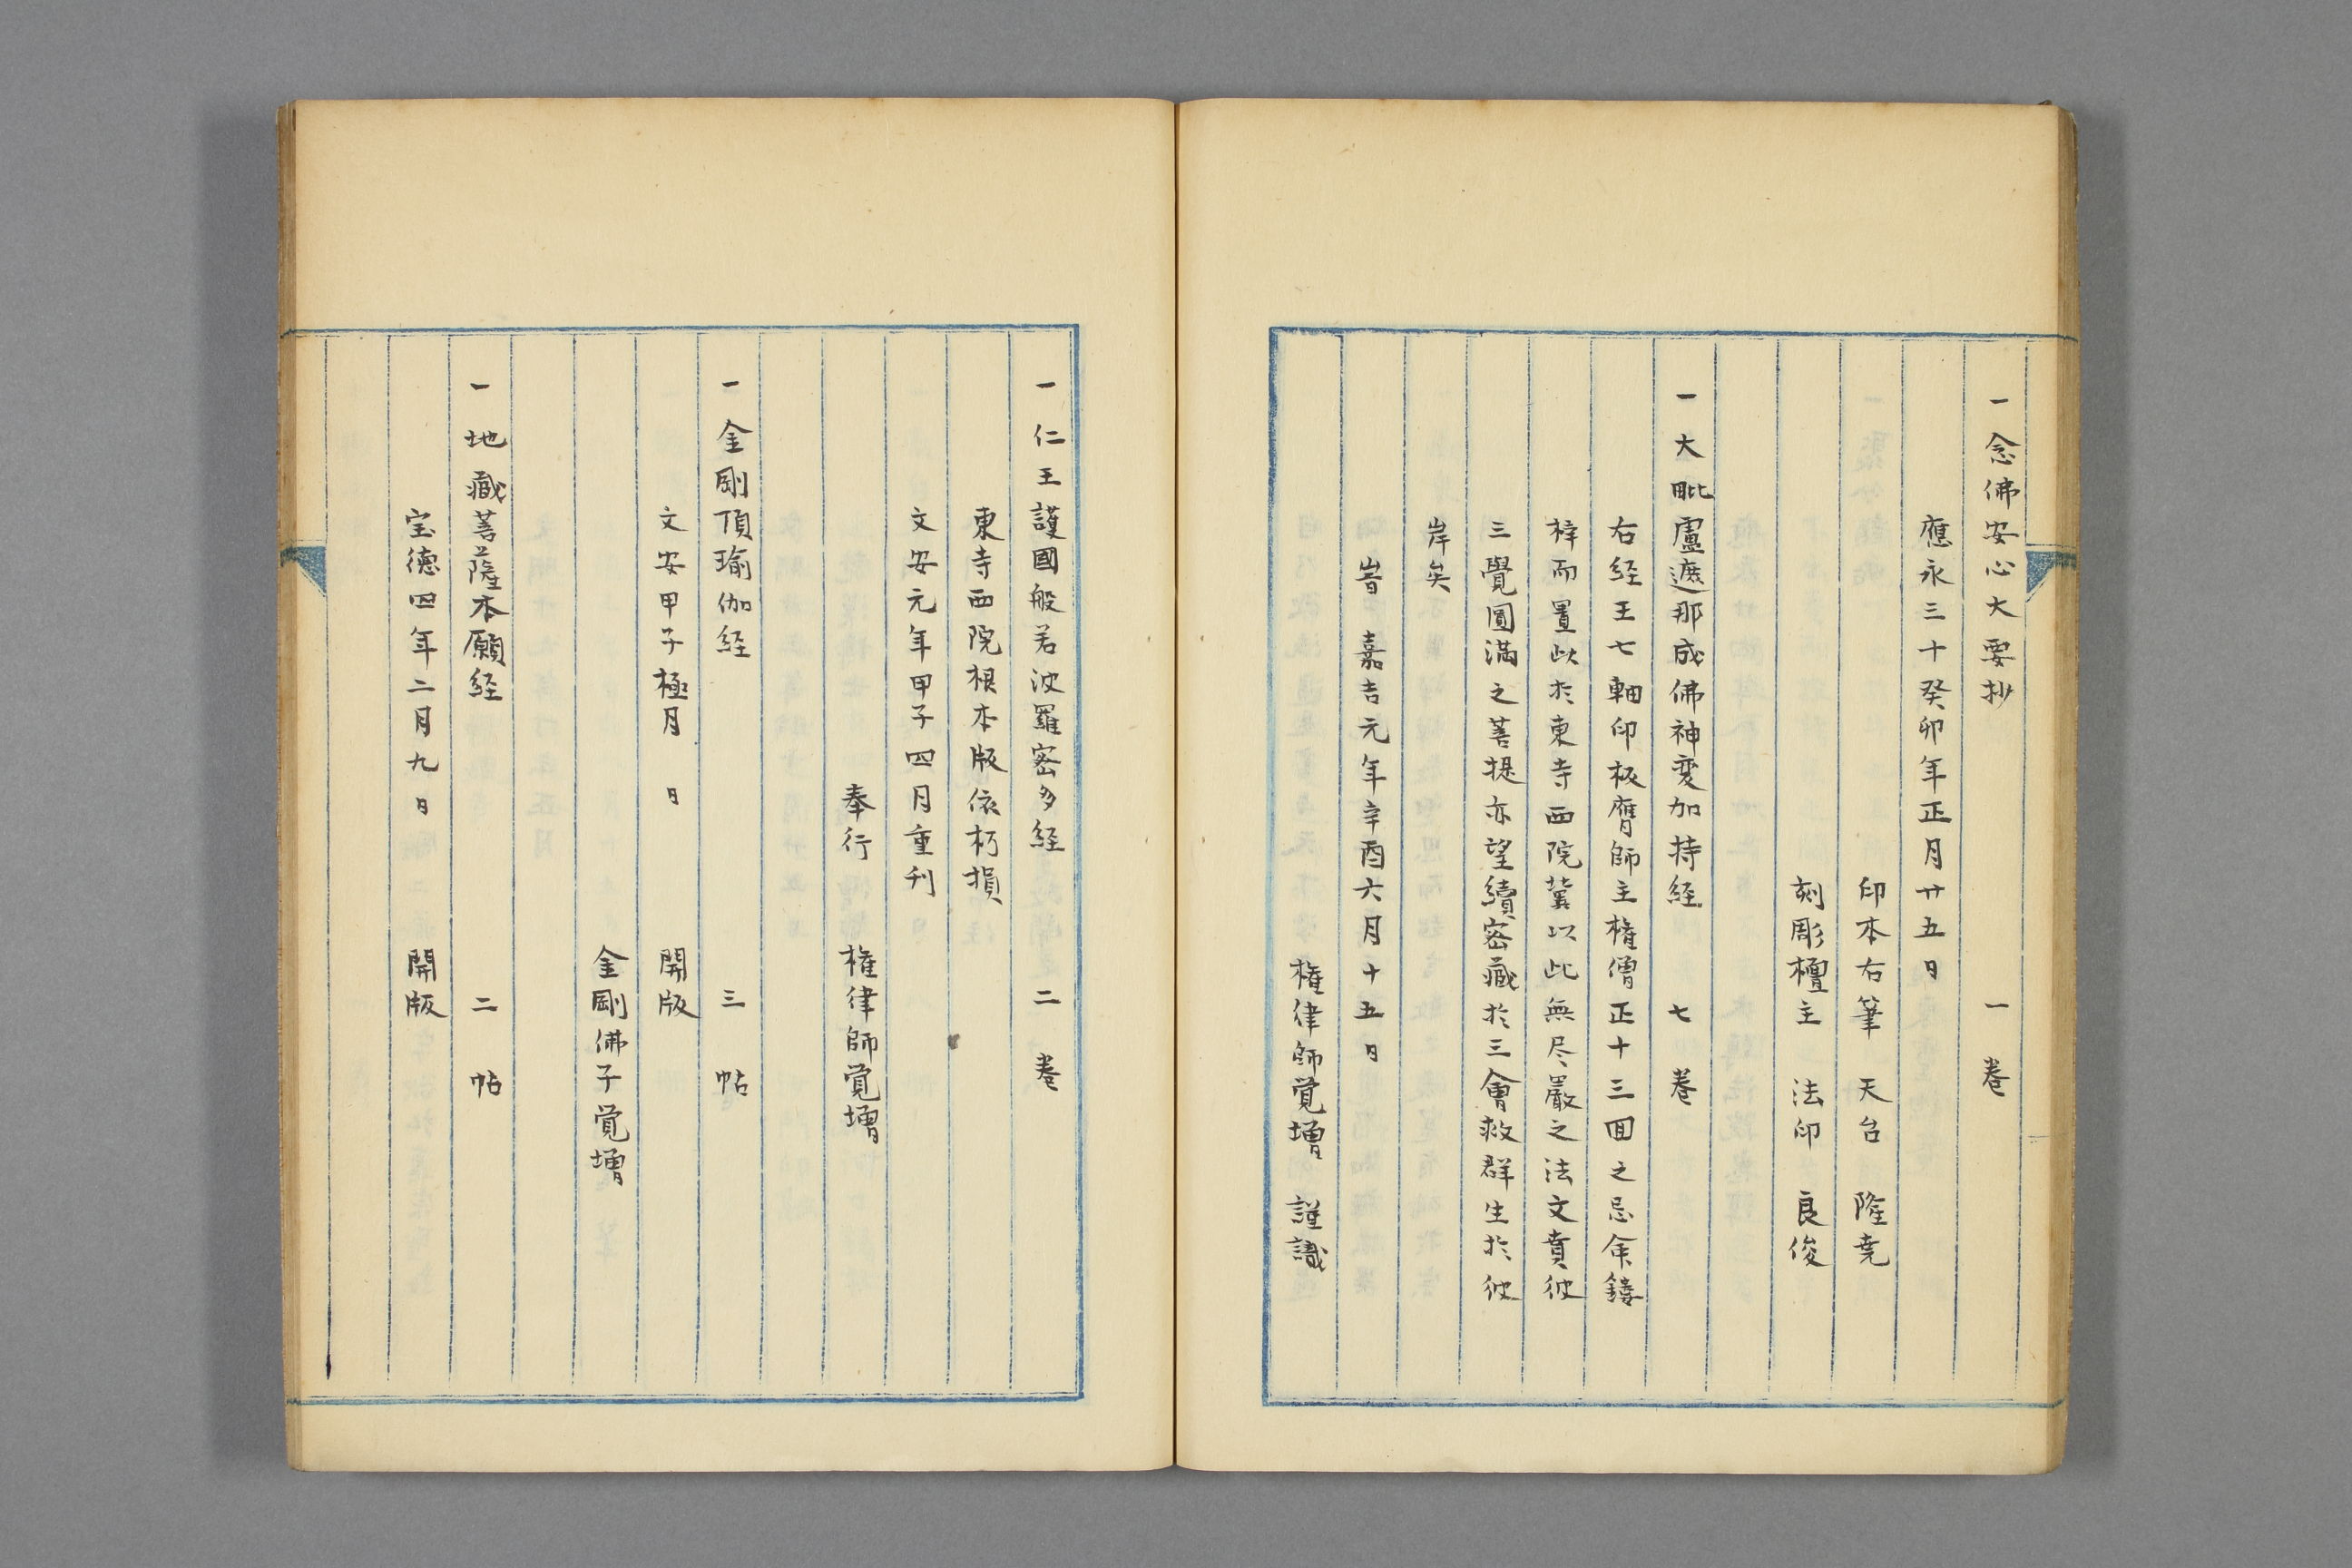 一念佛安心大要抄　一巻
應永三十癸卯年正月廿五日
印本右筆　天台　隆尭
刻彫檀主　法印　良俊
一大毗盧遮那成佛神変加持経　七巻
右経王七軸印板膺師主権僧正十三囬之忌余鏤
梓而置此於東寺西院冀以此無尽嚴之法文賁彼
三覺圓満之菩提亦望續密藏於三會救群生於彼
岸矣
旹　嘉吉元年辛酉六月十五日
権律師覚増　謹識
一仁王護國般若波羅密多経　二巻
東寺西院根本版依朽損
文安元年甲子四月重刊
奉行　権律師覚増
一金剛頂瑜伽経　三帖
文安甲子極月　日　開版
金剛佛子覚増
一地藏菩薩本願経　二帖
宝徳四年二月九日　開版